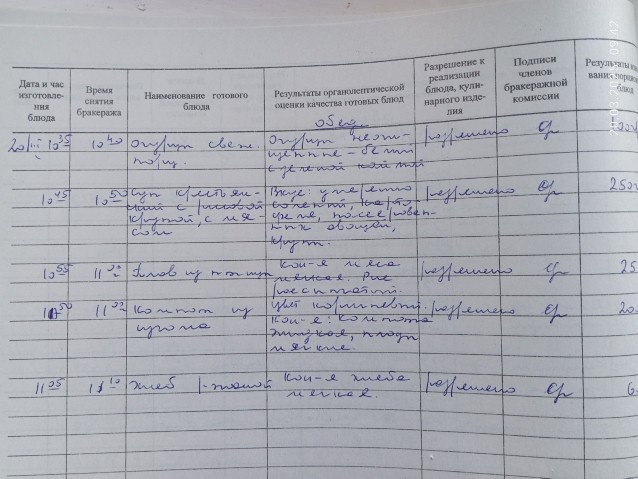 Дата и час изготовле-ния блюда
Время снятия бракеража
Наименование готового блюда
Результаты органолептической оценки качества готовых блюд
Разрешение к реализации блюда, кули-нарного изде-лия
Подписи членов бракеражной комиссии
Результаты
блюд
обед
20/III 10 35
10 40
Огурец свеж.
порц.
Огурцы неочи-
щенные – белый
с зеленой каймой
разрешено
10 45
10 50
Суп крестьян-
ский с рисовой
крупой, с мя-
сом
Вкус: умеренно
соленый, карто-
феля, пассерован-
ных овощей,
круп.
разрешено
250
10 55
11 00
Плов из птицы
Кон-я мяса
мягкая. Рис
рассыпчатый.
разрешено
25
Компот из
изюма
Цвет коричневый.
Кон-я: компота
жидкая, плоды
мягкие.
разрешено
20
11 05
11 10
Хлеб ржаной
Кон-я хлеба
мягкая.
разрешено
6